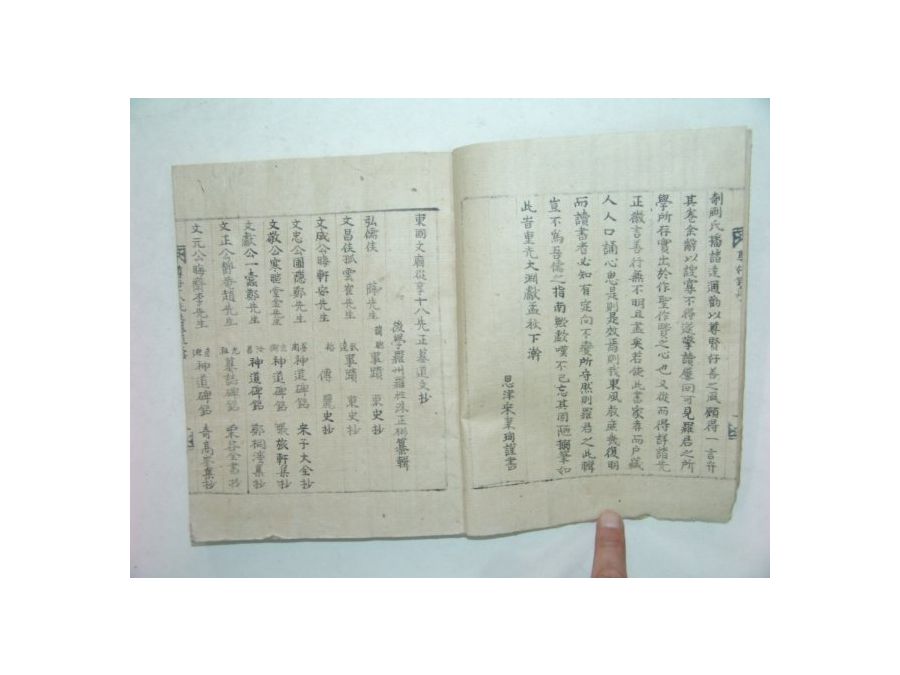 劑剛氏播諸遠邇勸以尊賢行善之風顧得一言弁
其卷余辭以謏寡不得遂擎讀屢回可見羅君之所
學所存實出於作聖作賢之心也又從而得詳諸先
正微言善行無不明且盡矣若使此書家專而戶藏
人人口誦心思是則是效焉則我東風敎庶幾復明
而讀書者必知有定向不變所守然則羅君之此輯
豈不爲吾儒之指南歟歎嘆不已忘其固陋搦筆如
此旹重光大淵獻孟秋下澣
恩津宋東珣謹書
東國文廟從享十八先正墓道文抄
後學羅州羅 洙正 纂輯
弘儒侯 薛先生 聰 事蹟 東史抄
文昌侯孤雲崔先生 致遠 事蹟 東史抄
文成公晦軒安先生 裕 傳 麗史抄
文忠公圃隱鄭先生 夢周 神道碑銘 宋子大全抄
文敬公寒暄堂金先生 宏弼 神道碑銘 張旅軒集抄
文獻公一蠹鄭先生 汝昌 神道碑銘 鄭桐溪集抄
文正公靜菴趙先生 光祖 墓誌碑銘 栗谷全書抄
文元公晦齋李先生 彦迪 神道碑銘 奇高峯集抄